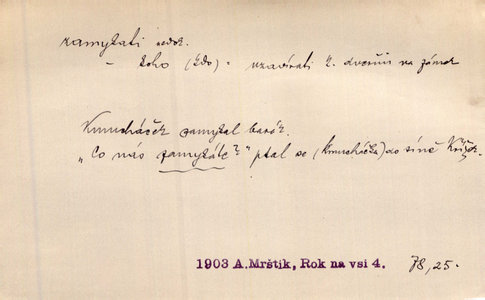 zamytati nedok.
– koho (kdo) • uzavírati k. dveřmi na zámek
Kmucháček zamytal barák.
„Co nás zamytáte?" ptal se (Kmucháčka) do síně
1903 A.Mrštík, Rok na vsi 4. 78,25.